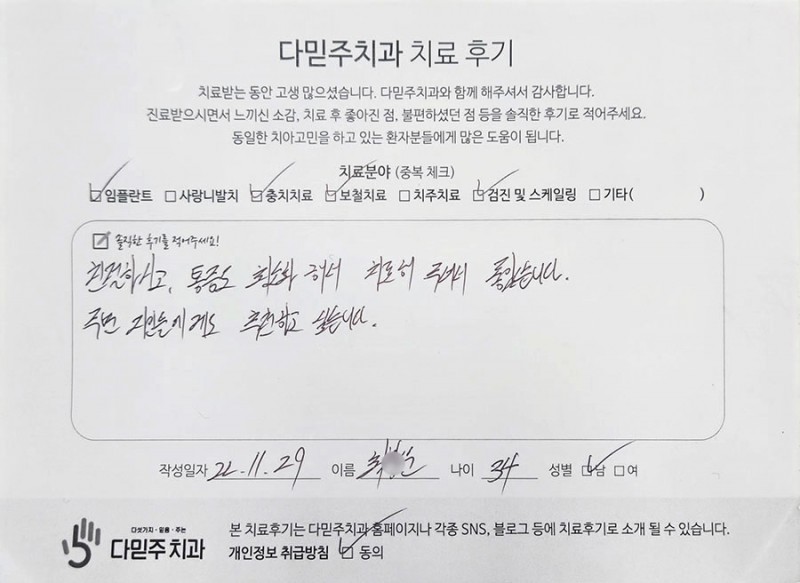 다믿주치과 치료 후기
치료받는 동안 고생 많으셨습니다. 다믿주치과와 함께 해주셔서 감사합니다.
진료받으시면서 느끼신 소감, 치료 후 좋아진 점, 불편하셨던 점 등을 솔직한 후기로 적어주세요.
동일한 치아고민을 하고 있는 환자분들에게 많은 도움이 됩니다.
치료분야 (중복 체크)
임플란트 사랑니발치 충치치료 보철치료 치주치료 검진 및 스케일링 기타( )
솔직한 후기를 적어주세요!
친절하시고, 통증도 최소화 해서 치료해 주셔서 좋았습니다.
주변 지인들에게도 추천하고 싶습니다.
작성일자 22.11.29 이름 나이 34 성별 남 여
다섯가지·믿음·주는
다믿주치과
본 치료후기는 다믿주치과 홈페이지나 각종 SNS, 블로그 등에 치료후기로 소개 될 수 있습니다.
개인정보 취급방침 동의